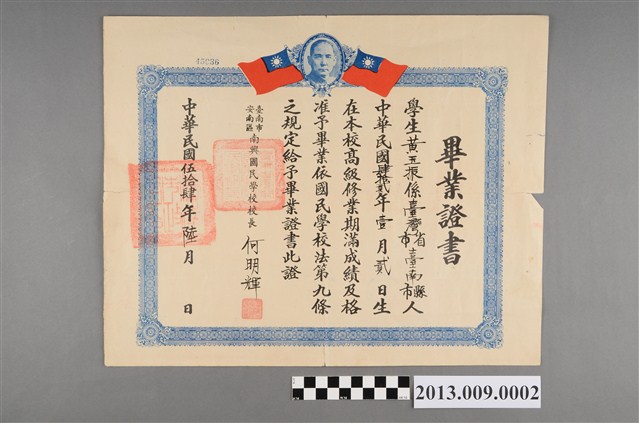 45036
畢業證書
學生黃五振係臺灣省市臺南縣市人
中華民國肆拾貳年壹月貳日生
在本校高級修業期滿成績及格
准予畢業依國民學校法第九條
之規定給予畢業證書此證
臺南市安南區南興國民學校校長 何明輝
中華民國伍拾肆年陸月 日
2013.009.0002